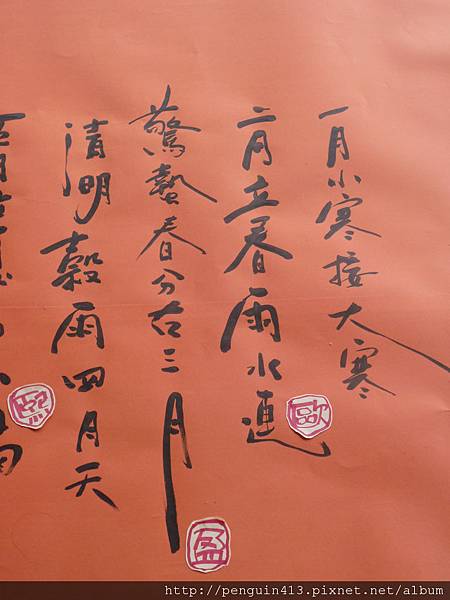 一月小寒接大寒
二月立春雨水連
歐
驚蟄春分在三月
盈
清明穀雨四月天
http://penguin413.pixnet.net/album